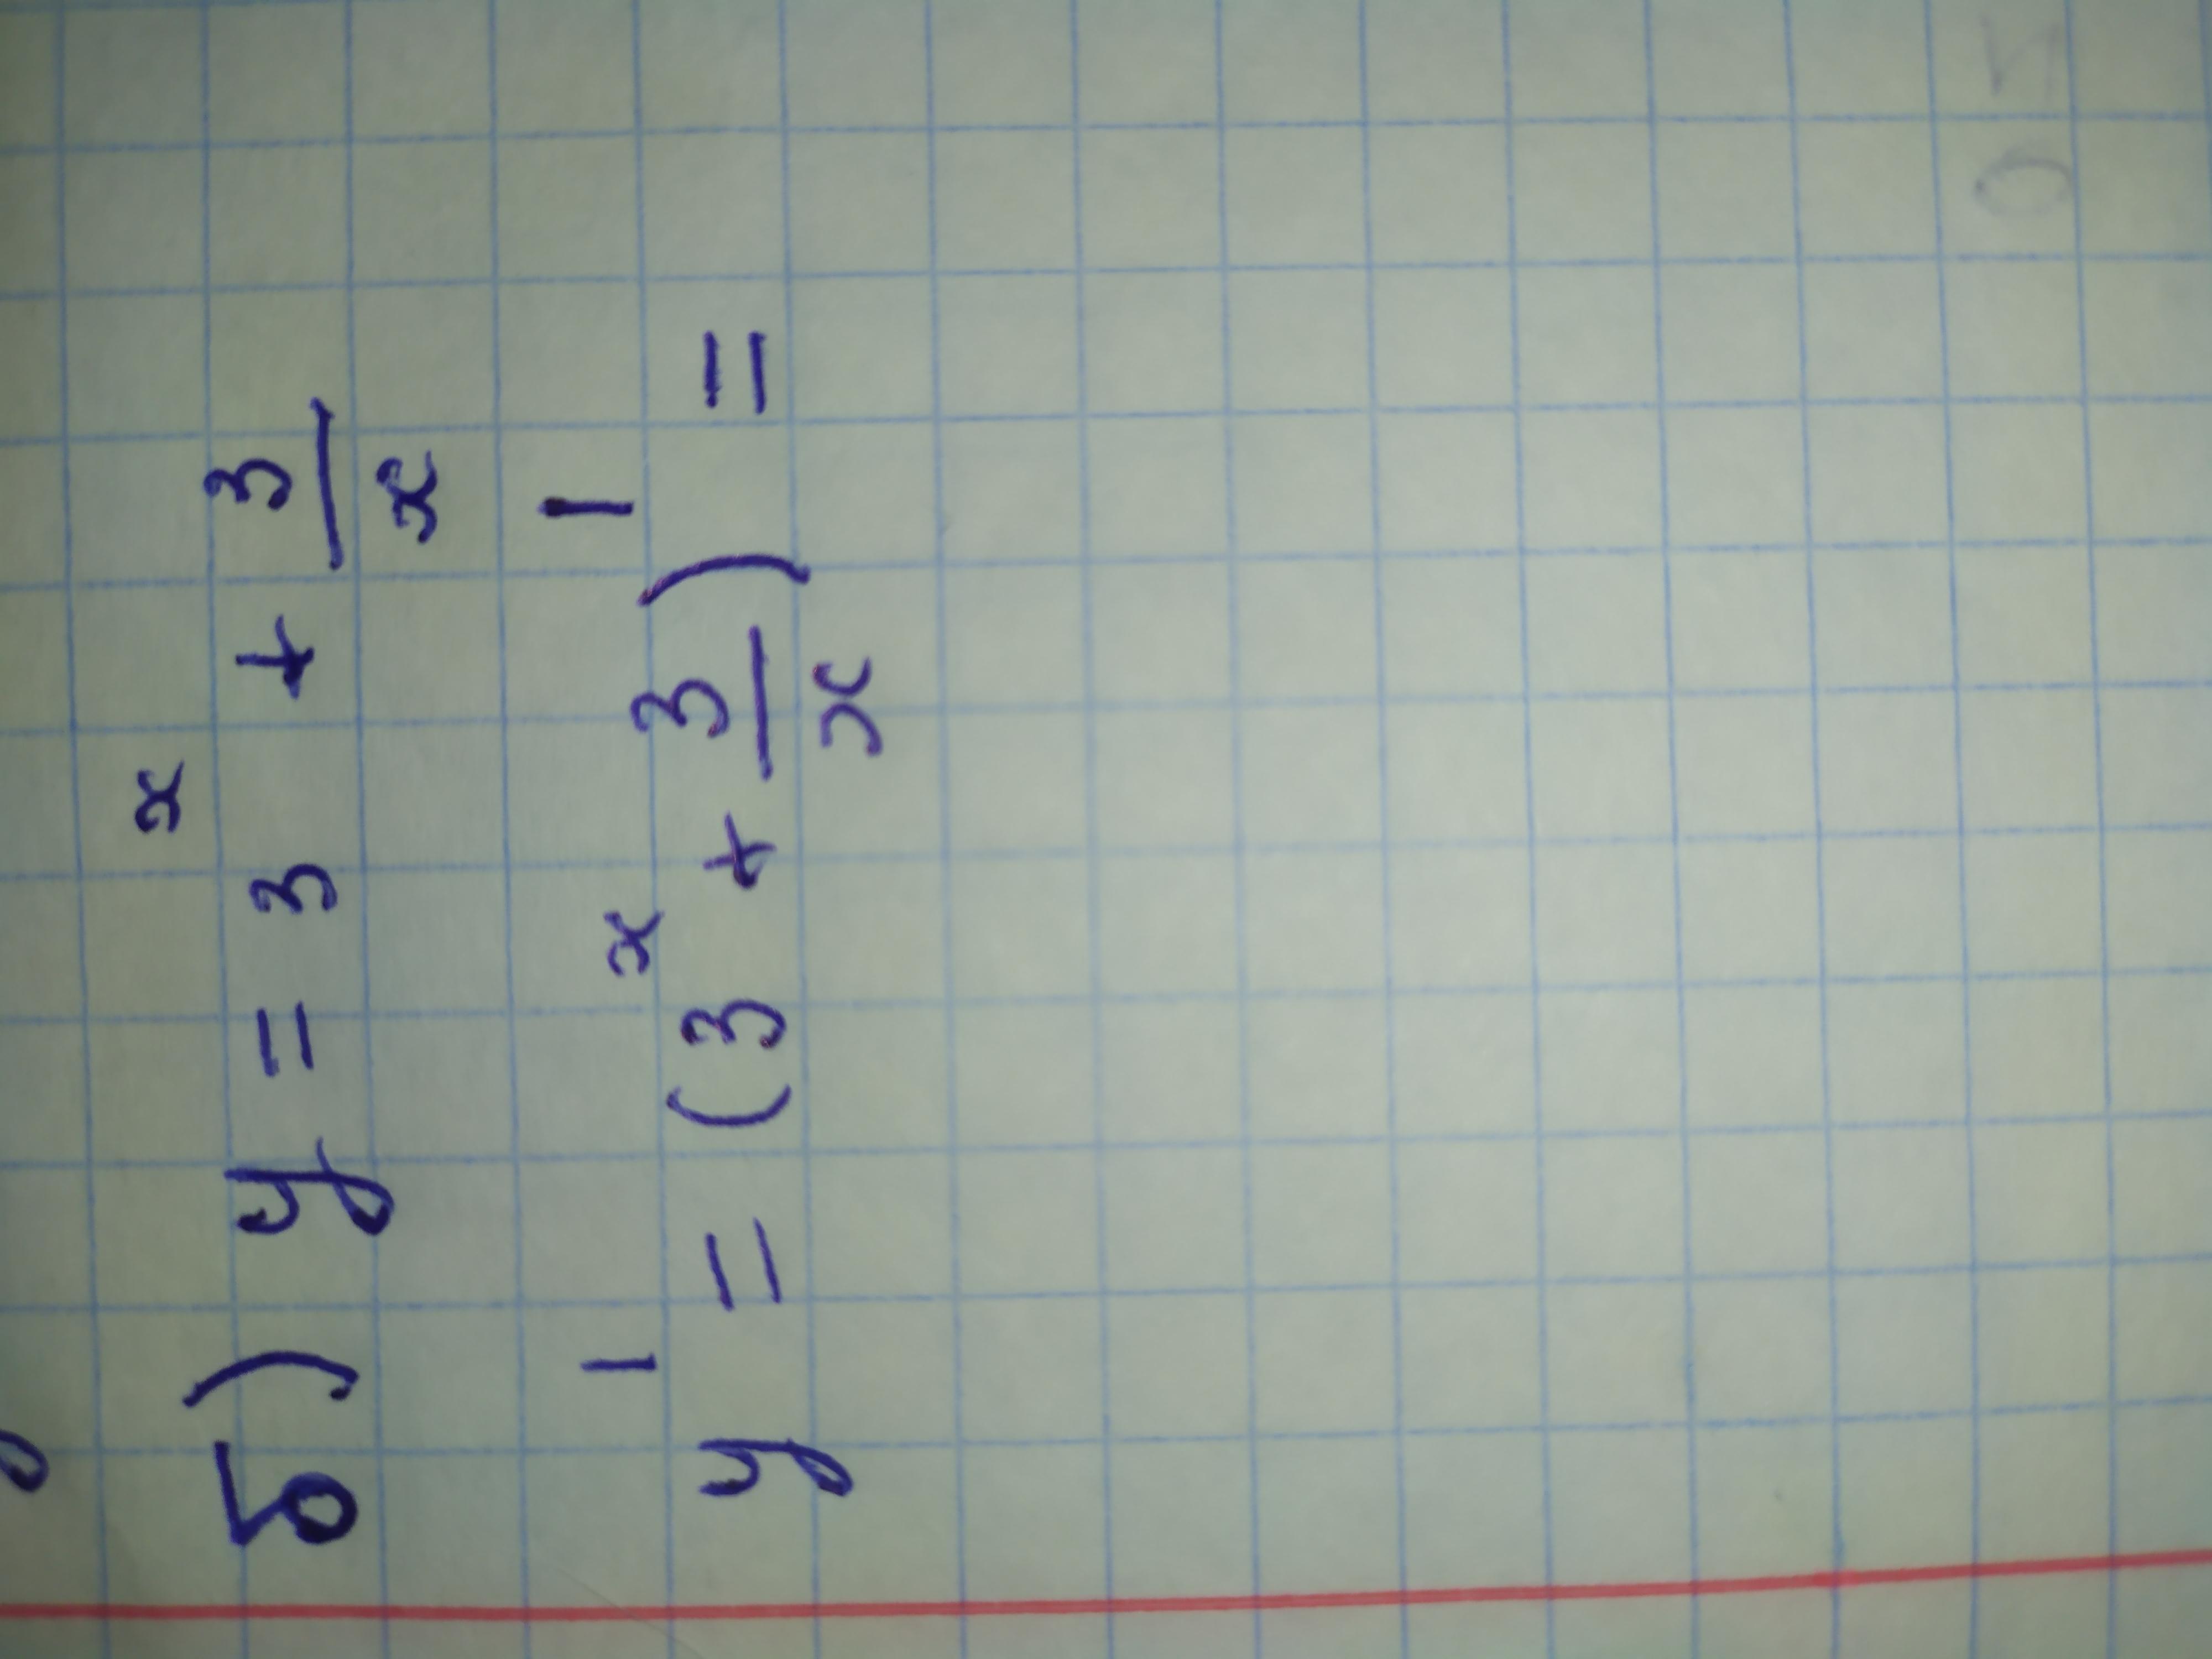 б) y = 3^x + 3/x
y' = (3^x + 3/x)' =